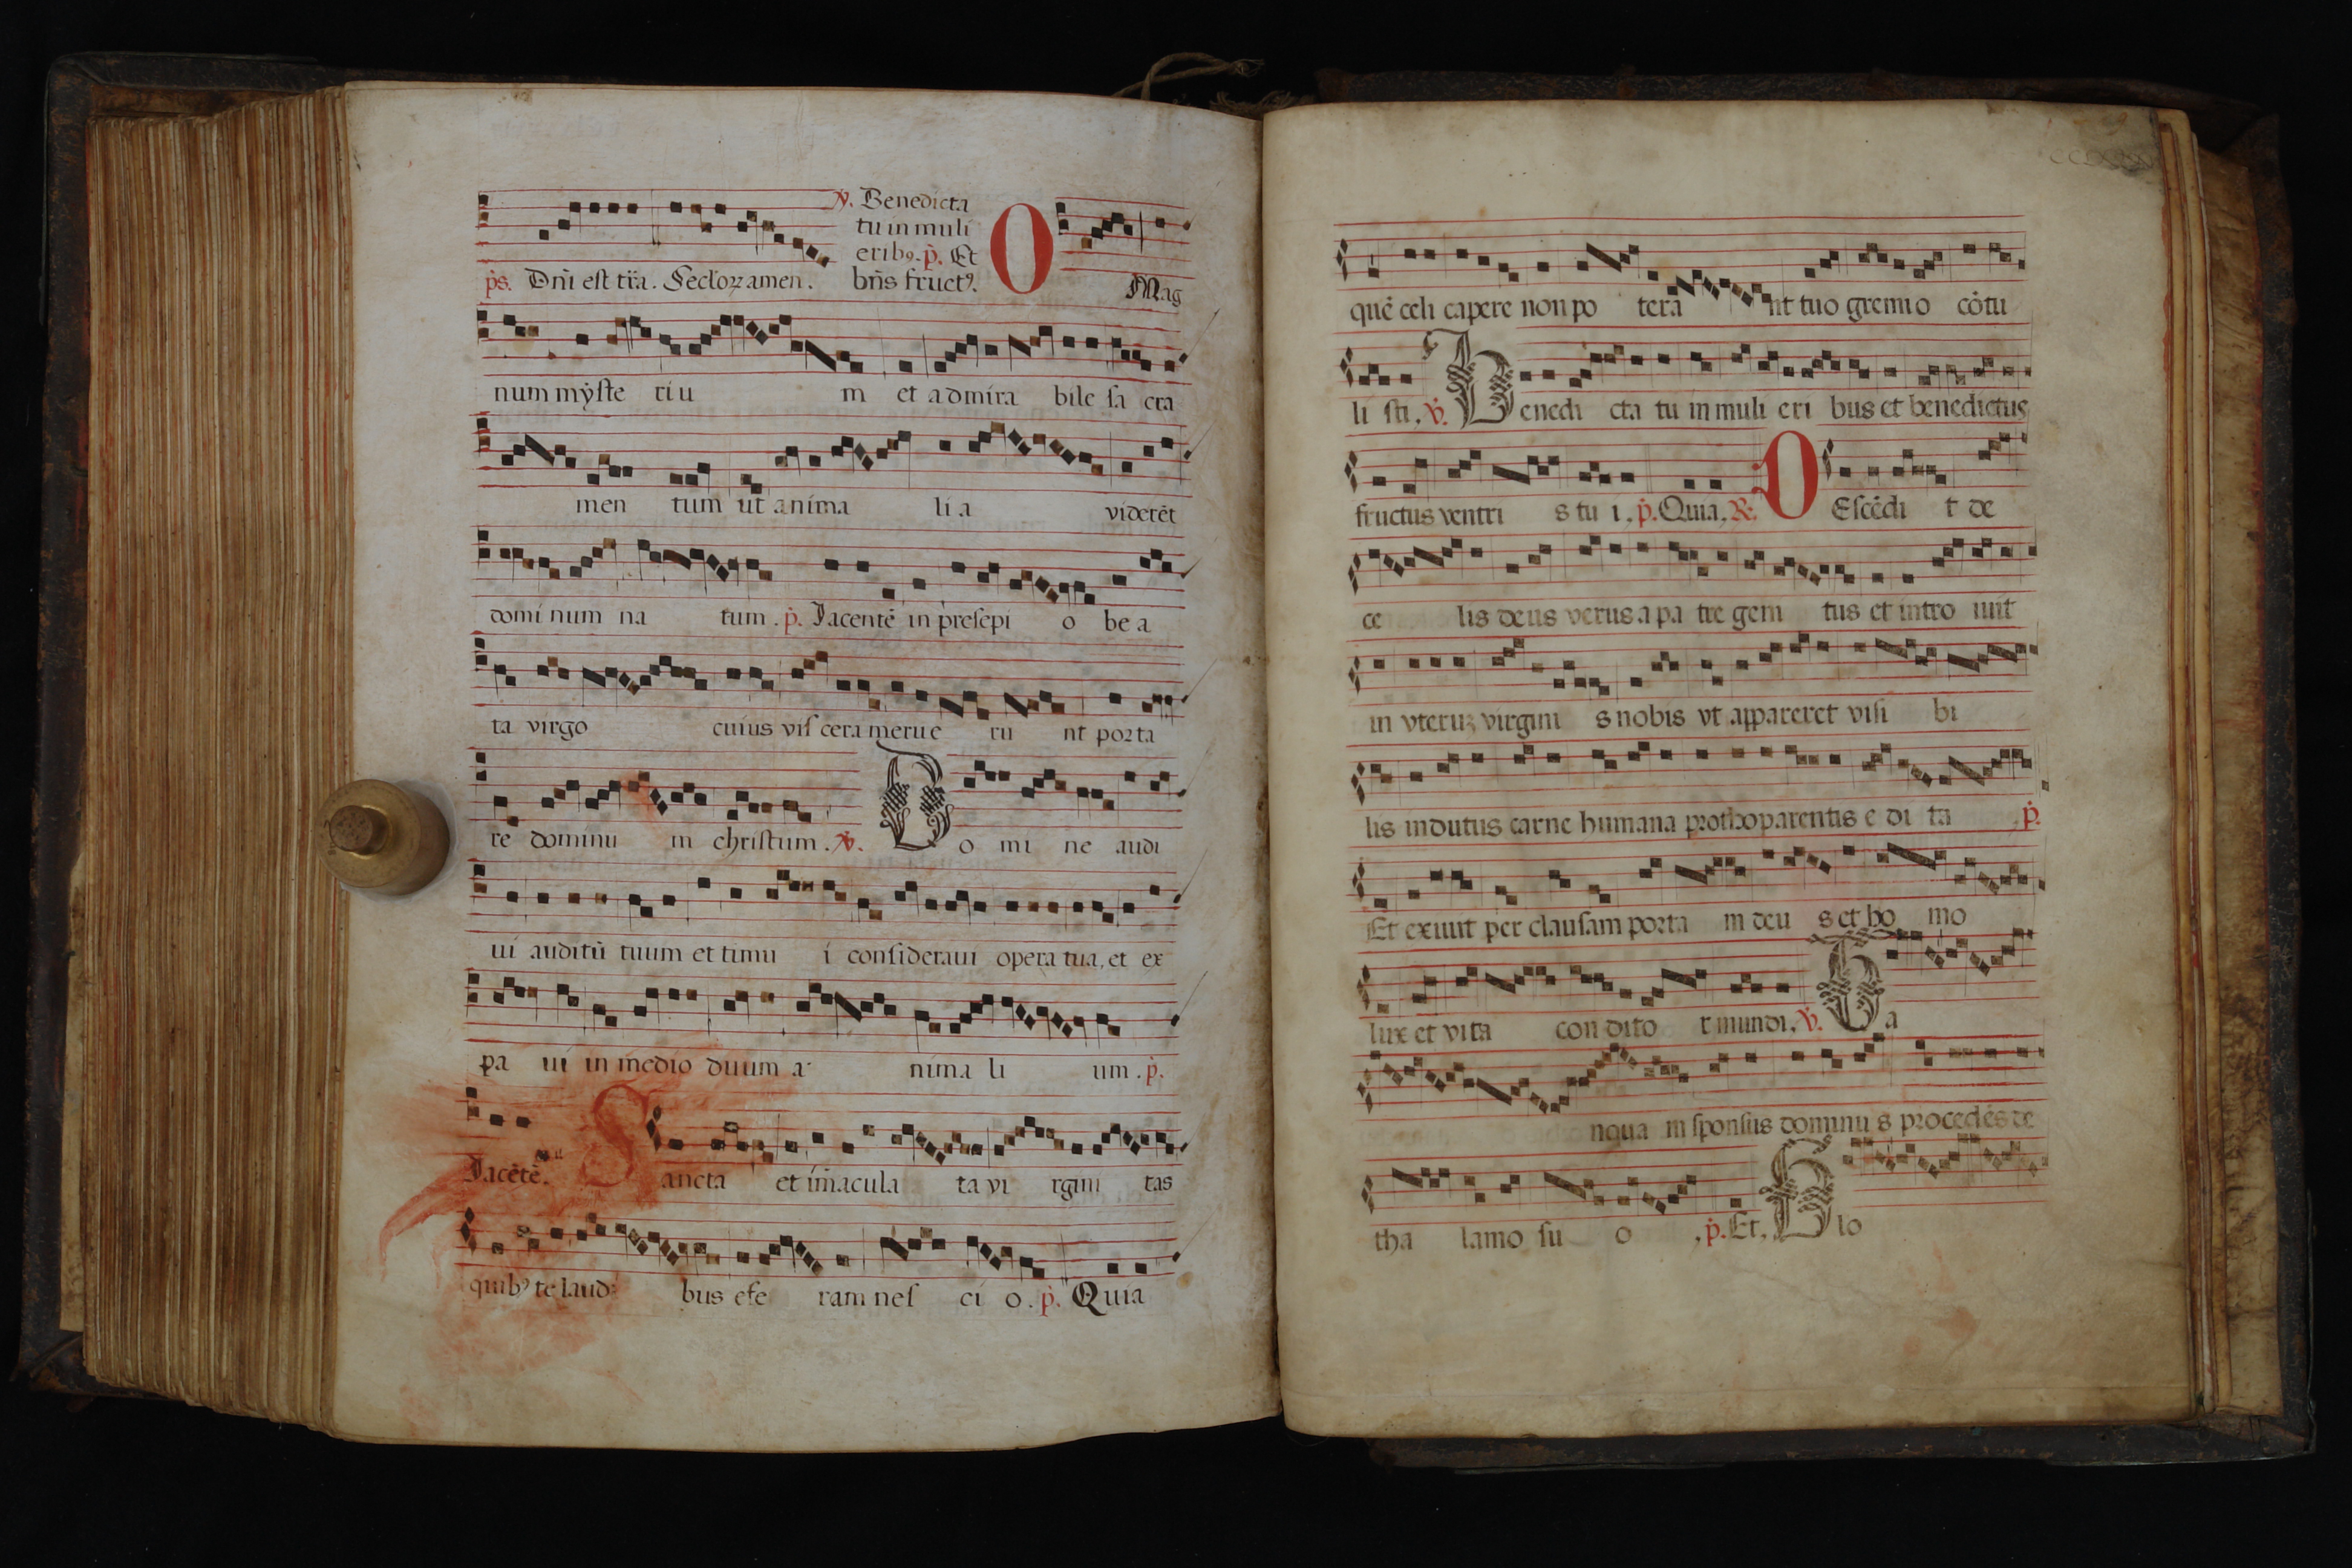 ℣. Benedicta
tu in muli
eribꝯ. p̄. Et
p̄s. Dn̄i est tr̄a. Seclorꝝ amen. bn̄s fructꝯ. O Mag
num mẏste riu m et admira bile sa cra
men tum ut anima li a viderēt
domi num na tum. p̄. Jacentē in presepi o be a
ta virgo cuius vis cera merue ru nt porta
re dominu m christum. ℣. D o mi ne audi
ui auditū tuum et timu i consideraui opera tua, et ex
pa ui in medio duum a nima li um. p̄.
Jacētē. S ancta et īmacula ta vi rgini tas
quibꝯ te laudi bus efe ram nes ci o. p̄. Quia
quē celi capere non po tera nt tuo gremio cōtu
li sti. ℣. B enedi cta tu in muli eri bus et benedictus
fructus ventri s tu i. p̄. Quia. ℟. D Escēdi t de
ce lis deus verus a pa tre geni tus et intro iuit
in vteruꝫ virgini s nobis vt appareret visi bi
lis indutus carne humana prothoparentis e di ta p̄.
Et exiuit per clausam porta m deu s et ho mo
lux et vita con dito r mundi. ℣. T a
nqua m sponsus dominu s procedēs de
tha lamo su o . p̄. Et. G lo